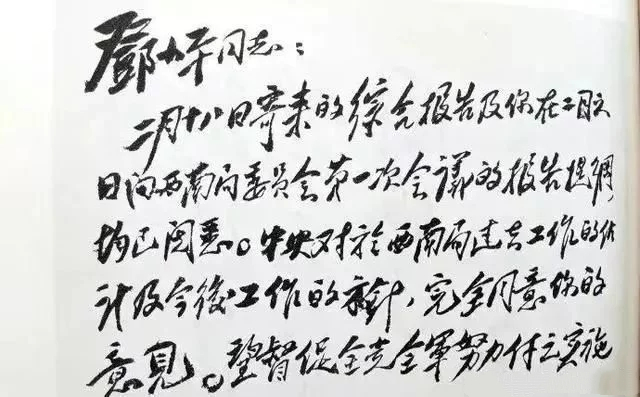 鄧小平同志：
二月十八日寄来的综合报告及你在二月六
日向西南局委員会第一次会議的报告提綱
均已阅悉。中央对於西南局过去工作的估
计及今後工作的方針，完全同意你的
意見。望督促全党全軍努力付之实施